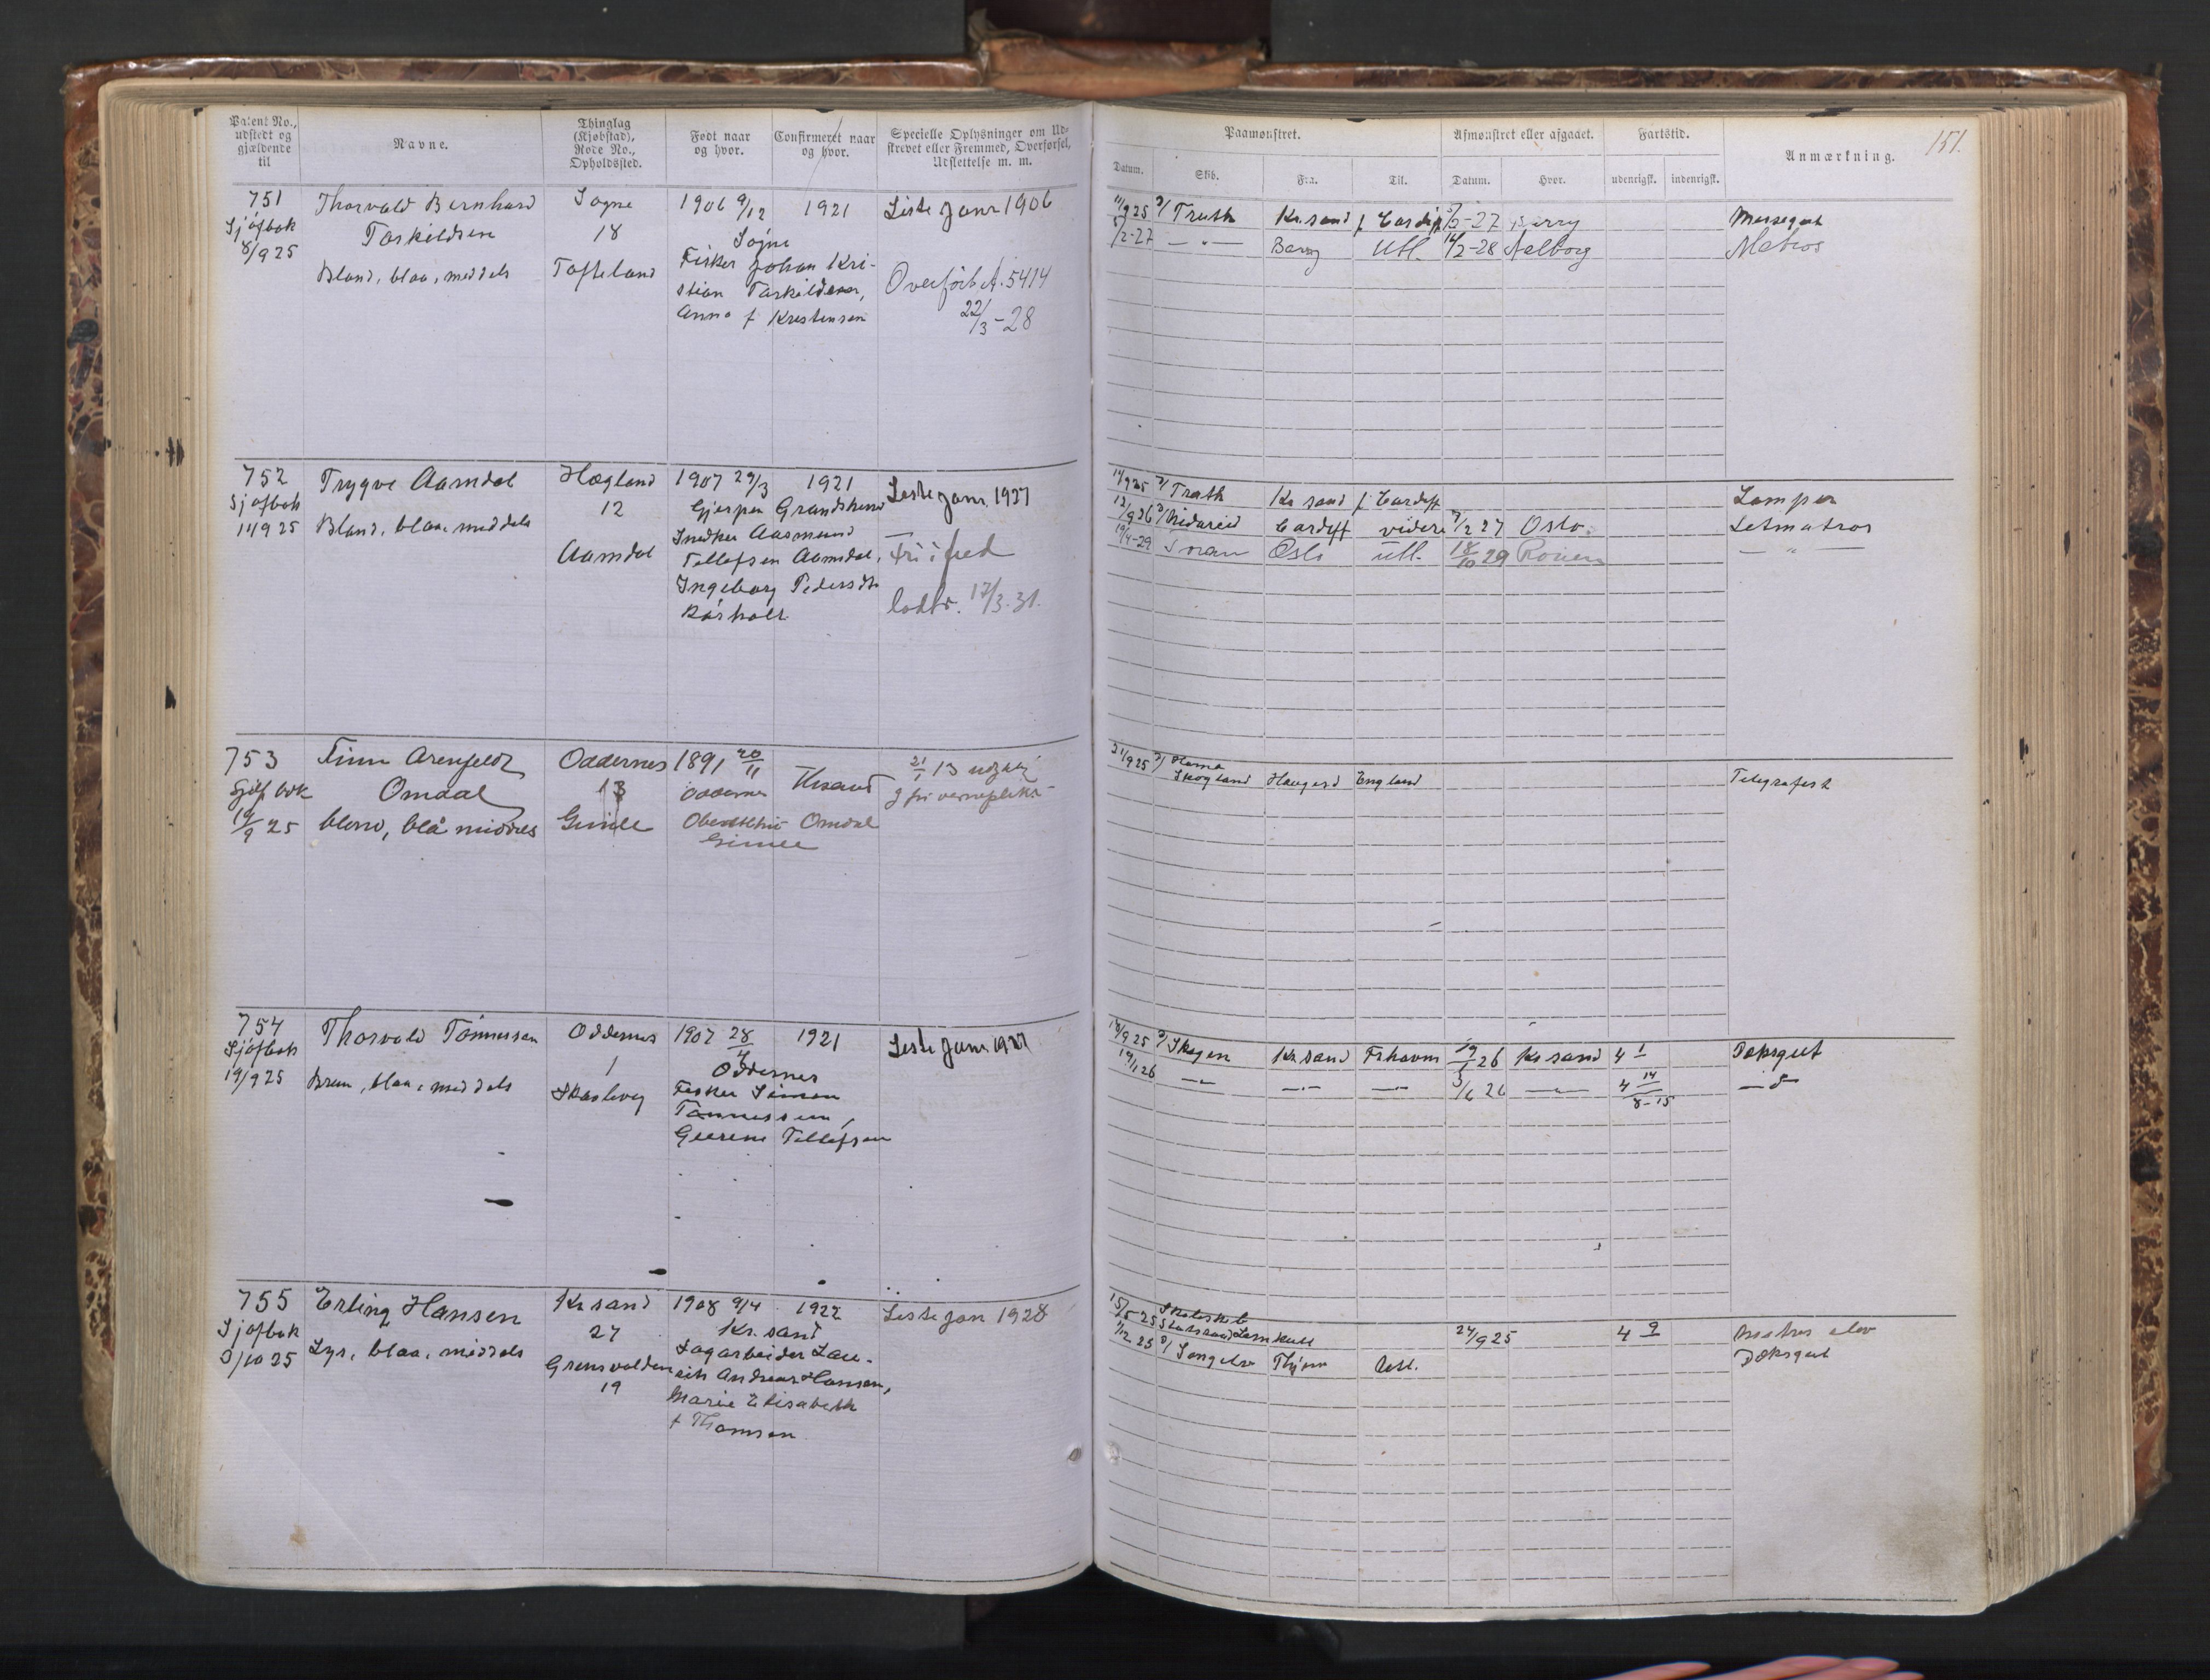 Patent No., udstedt og gjældende til
Navne.
Thinglag (Kjøbstad), Rode No., Opholdssted.
Født naar og hvor.
Confirmeret naar og hvor.
Specielle Oplysninger om Udskrevet eller Fremmed, Overførsel, Udslettelse m. m.
Paamønstret.
Afmønstret eller afgaaet.
Fartstid.
Anmærkning.
151.
Datum.
Skib.
Fra.
Til.
Datum.
Hvor.
udenrigsk.
indenrigsk.
751
Sjøfbok
8/9 25
Thorvald Bernhard
Torkildsen
Blond, blaa, meddels
Søgne
18
Tofteland
1906 9/12 1921
Søgne
Fisker Johan Kri-
stian Torkildsen,
Anna f Kristensen
Liste Janr 1906
Overført A. 5414
22/3-28
11/9 25 D/ Truth Kr.sand f. Cardiff 5/2-27 Barry Messegut
5/2-27 — " — Barry Utl. 16/2-28 Aalborg Matros
752
Sjøfbok
11/9 25
Trygve Aamdal
Blond, blaa, meddels
Høgland
12
Aamdal
1907 29/3 1921
Gjerpen
Snedker Aasmund
Tellefsen Aamdal,
Ingeborg Pedersdtr
Liste Janr. 1927
Fri i fred
17/3-31.
11/9 25 D/ Truth Kr sand f. Cardiff Lemper
12/9 26 D/ Nidareid Cardiff videre 7/2 27 Oslo. Letmatros
19/4-29 Oslo utl. 18/10 29 Rouen — " —
753
Sjøf bok
19/9 25
Finn Arenfeldt
Omdal
blond, blå middels
Oddernes
13
Gimle
1891 20/11 Krsand
Oddernes
Omdal
Gimle
21/1 13
31/9 25 D/ Homa
Skogland Haugesd England Telegrafist
754
Sjøfbok
19/9 25
Thorvald Tønnessen
Brun, blaa, meddels
Oddernes
1
1907 28/4 1921
Oddernes
Fisker Simon
Tønnessen,
Tellefsen
Liste Janr. 1927
18/9 25 D/ Skagen Kr.sand Frhavn 19/1 26 Kr sand 4 1 Dæksgut
19/1 26 — " — — " — — " — 3/6 26 — " — 4 14 — d —
8-15
755
Sjøfbok
3/10 25
Erling Hansen
Lys, blaa, middels
Kr sand
27
Grønvolden
19
1908 9/4 1922
Kr. sand
Sagarbeider Lau-
rits Andreas Hansen,
Marie Elisabeth
f Thomsen
Liste jan 1928
15/5 25 Skoleskib
Statsraad Lemkuhl 24/9 25 4 9 elev
1/12 25 D/ Songelv Utl. Dæksgut